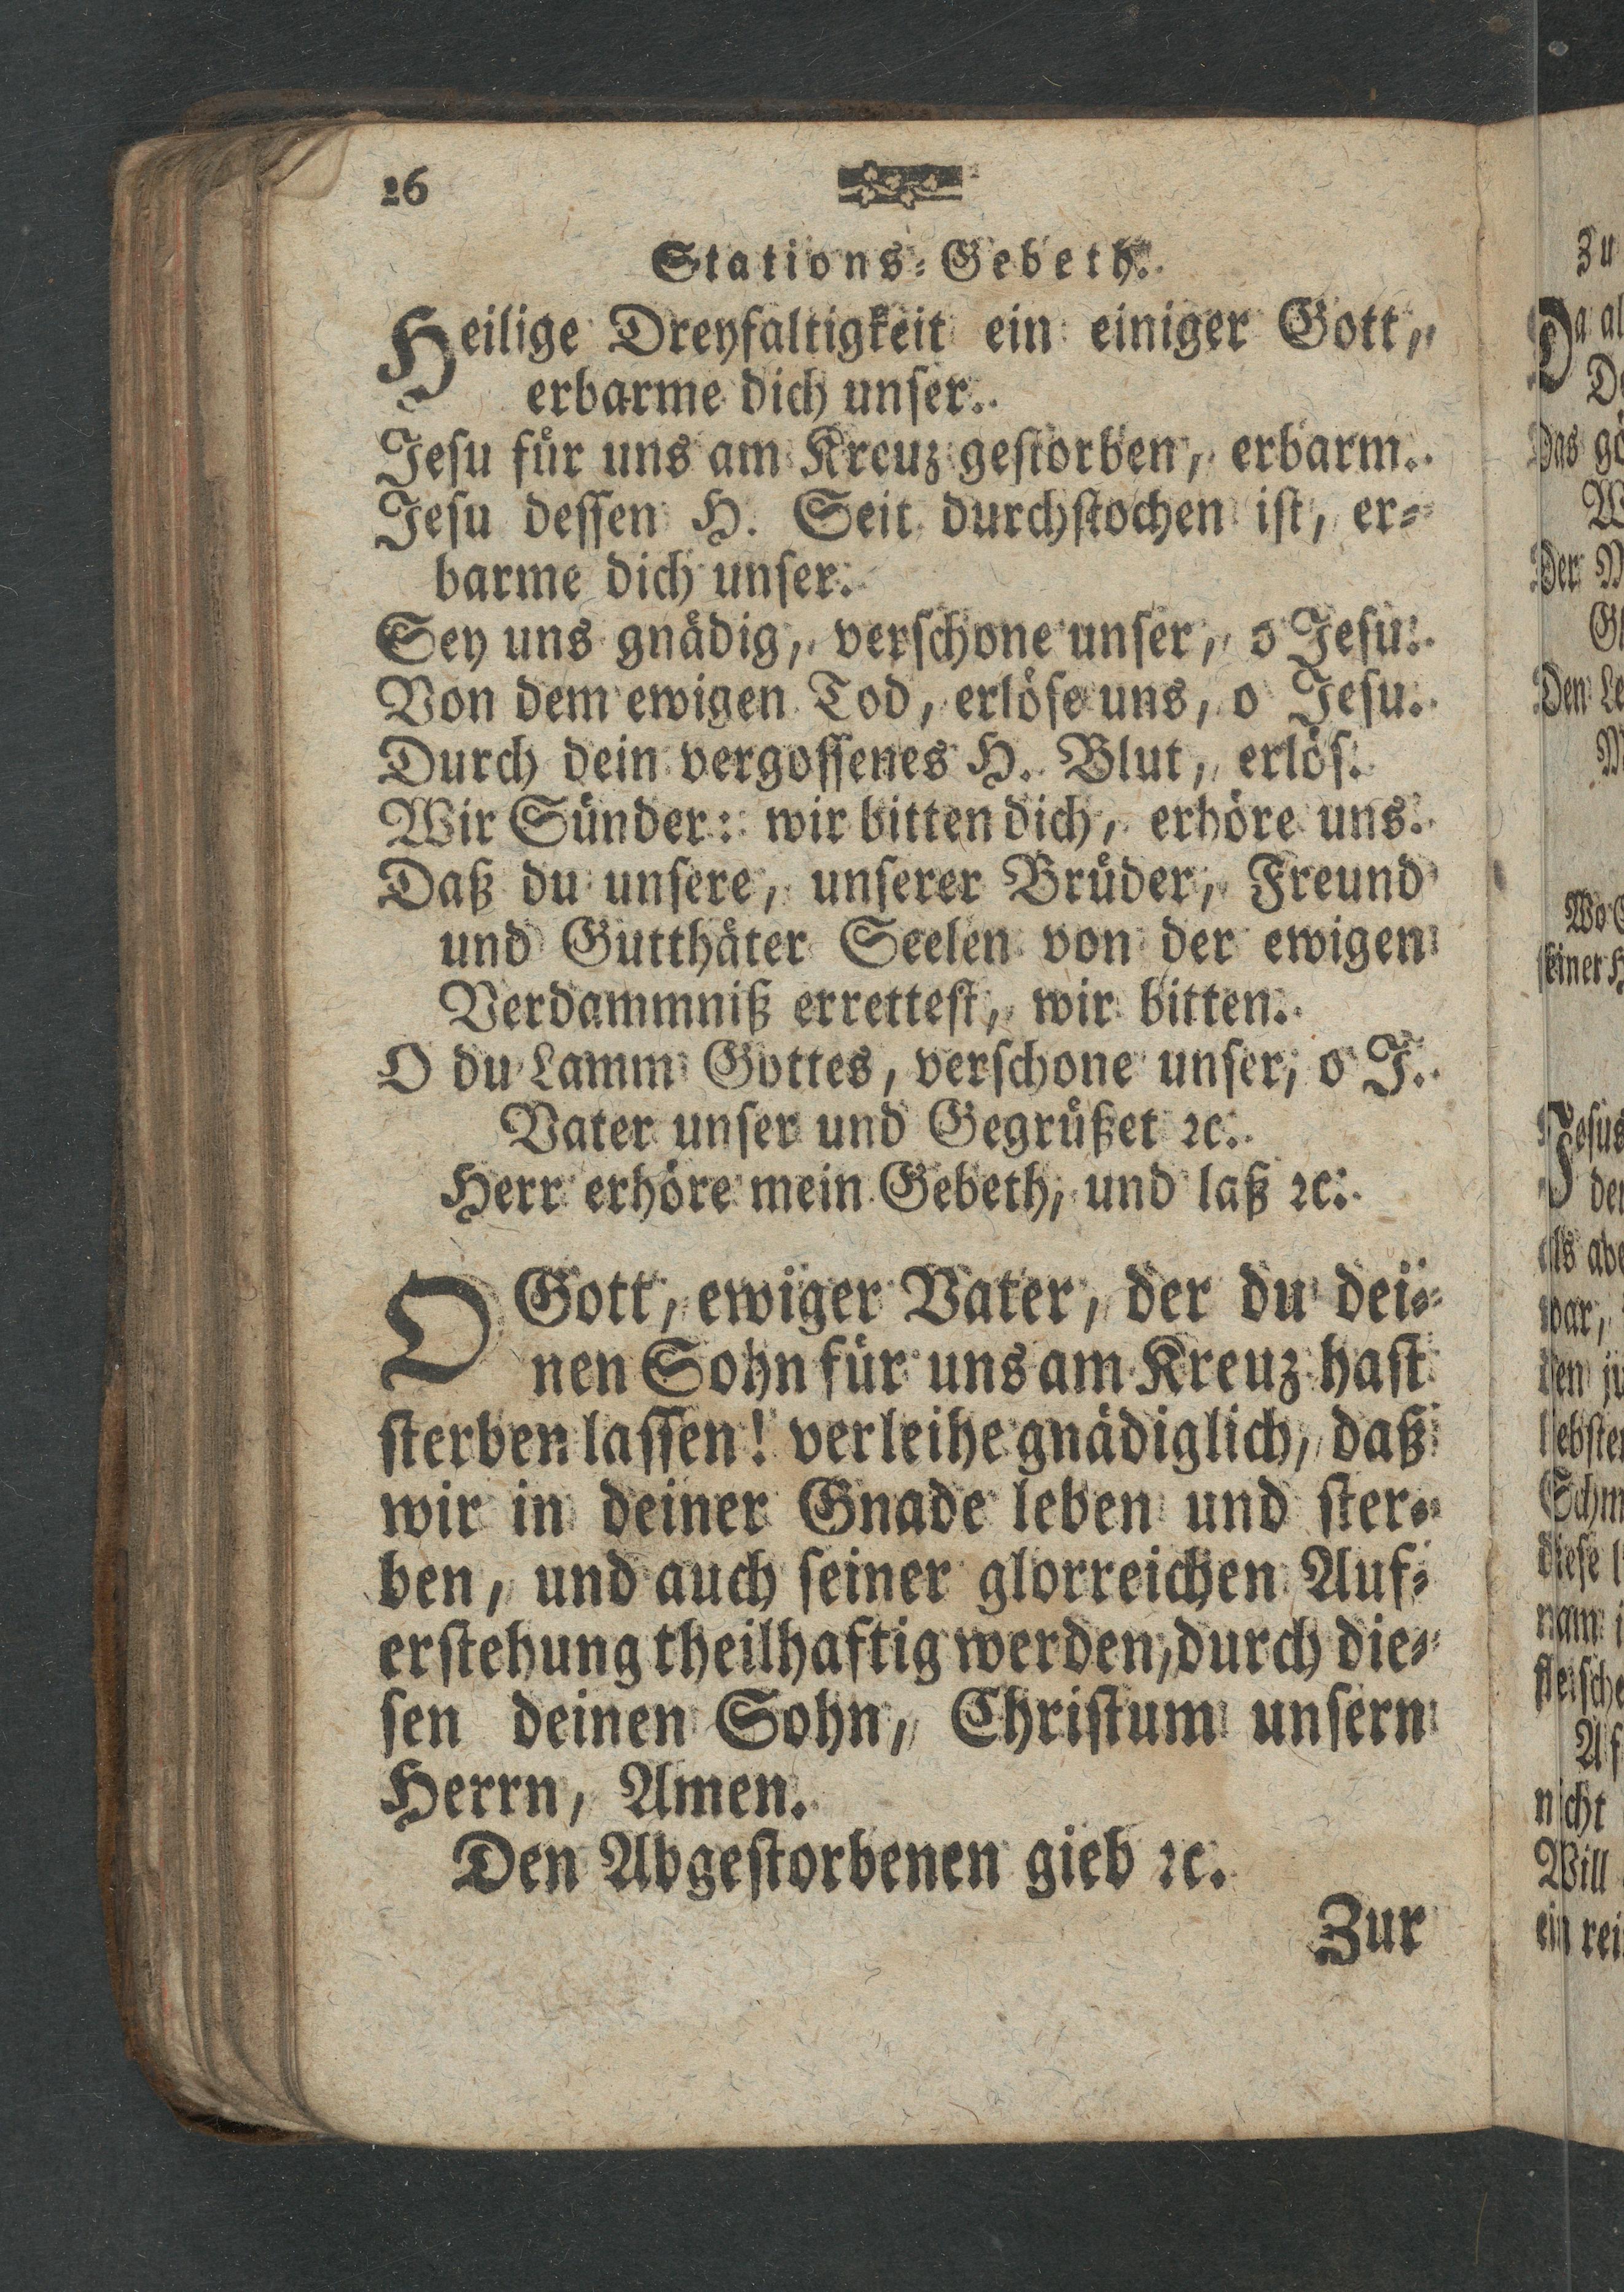 26
Stations-Gebeth.
Heilige Dreyfaltigkeit ein einiger Gott,
erbarme dich unser.
Jesu für uns am Kreuz gestorben, erbarm.
Jesu dessen H. Seit durchstochen ist, er-
barme dich unser.
Sey uns gnädig, verschone unser, o Jesu.
Von dem ewigen Tod, erlöse uns, o Jesu.
Durch dein vergossenes H. Blut, erlös.
Wir Sünder: wir bitten dich, erhöre uns.
Daß du unsere, unserer Brüder, Freund
und Gutthäter Seelen von der ewigen
Verdammniß errettest, wir bitten.
O du Lamm Gottes, verschone unser, o J.
Vater unser und Gegrüßet ꝛc.
Herr erhöre mein Gebeth, und laß ꝛc.
O Gott, ewiger Vater, der du dei-
nen Sohn für uns am Kreuz hast
sterben lassen! verleihe gnädiglich, daß
wir in deiner Gnade leben und ster-
ben, und auch seiner glorreichen Auf-
erstehung theilhaftig werden, durch die-
sen deinen Sohn, Christum unsern
Herrn, Amen.
Den Abgestorbenen gieb ꝛc.
Zur